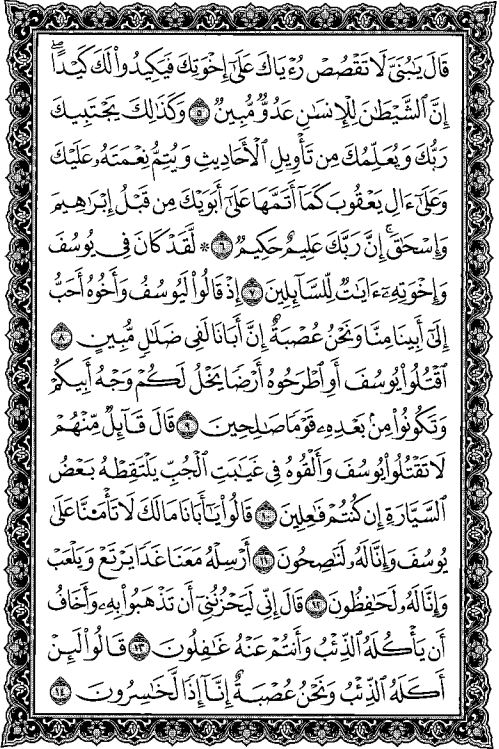 قَالَ يَٰبُنَيَّ لَا تَقْصُصْ رُءْيَاكَ عَلَىٰٓ إِخْوَتِكَ فَيَكِيدُوا۟ لَكَ كَيْدًا ۖ
إِنَّ ٱلشَّيْطَٰنَ لِلْإِنسَٰنِ عَدُوٌّ مُّبِينٌ ٥ وَكَذَٰلِكَ يَجْتَبِيكَ
رَبُّكَ وَيُعَلِّمُكَ مِن تَأْوِيلِ ٱلْأَحَادِيثِ وَيُتِمُّ نِعْمَتَهُۥ عَلَيْكَ
وَعَلَىٰٓ ءَالِ يَعْقُوبَ كَمَآ أَتَمَّهَا عَلَىٰٓ أَبَوَيْكَ مِن قَبْلُ إِبْرَٰهِيمَ
وَإِسْحَٰقَ ۚ إِنَّ رَبَّكَ عَلِيمٌ حَكِيمٌ ٦ ۞ لَّقَدْ كَانَ فِى يُوسُفَ
وَإِخْوَتِهِۦٓ ءَايَٰتٌ لِّلسَّآئِلِينَ ٧ إِذْ قَالُوا۟ لَيُوسُفُ وَأَخُوهُ أَحَبُّ
إِلَىٰٓ أَبِينَا مِنَّا وَنَحْنُ عُصْبَةٌ إِنَّ أَبَانَا لَفِى ضَلَٰلٍ مُّبِينٍ ٨
ٱقْتُلُوا۟ يُوسُفَ أَوِ ٱطْرَحُوهُ أَرْضًا يَخْلُ لَكُمْ وَجْهُ أَبِيكُمْ
وَتَكُونُوا۟ مِنۢ بَعْدِهِۦ قَوْمًا صَٰلِحِينَ ٩ قَالَ قَآئِلٌ مِّنْهُمْ
لَا تَقْتُلُوا۟ يُوسُفَ وَأَلْقُوهُ فِى غَيَٰبَتِ ٱلْجُبِّ يَلْتَقِطْهُ بَعْضُ
ٱلسَّيَّارَةِ إِن كُنتُمْ فَٰعِلِينَ ١٠ قَالُوا۟ يَٰٓأَبَانَا مَا لَكَ لَا تَأْمَ۫نَّا عَلَىٰ
يُوسُفَ وَإِنَّا لَهُۥ لَنَٰصِحُونَ ١١ أَرْسِلْهُ مَعَنَا غَدًا يَرْتَعْ وَيَلْعَبْ
وَإِنَّا لَهُۥ لَحَٰفِظُونَ ١٢ قَالَ إِنِّى لَيَحْزُنُنِىٓ أَن تَذْهَبُوا۟ بِهِۦ وَأَخَافُ
أَن يَأْكُلَهُ ٱلذِّئْبُ وَأَنتُمْ عَنْهُ غَٰفِلُونَ ١٣ قَالُوا۟ لَئِنْ
أَكَلَهُ ٱلذِّئْبُ وَنَحْنُ عُصْبَةٌ إِنَّآ إِذًا لَّخَٰسِرُونَ ١٤